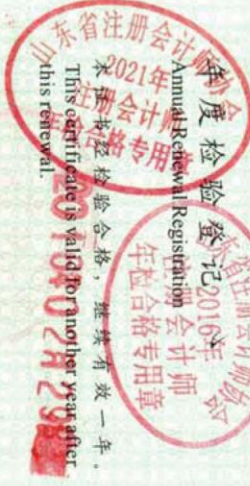 年度检验登记
Annual Renewal Registration
本证书经检验合格，继续有效一年。
This certificate is valid for another year after
this renewal.
山东省注册会计师协会
2021年
注册会计师
合格专用章
2016年
注册会计师
年检合格专用章